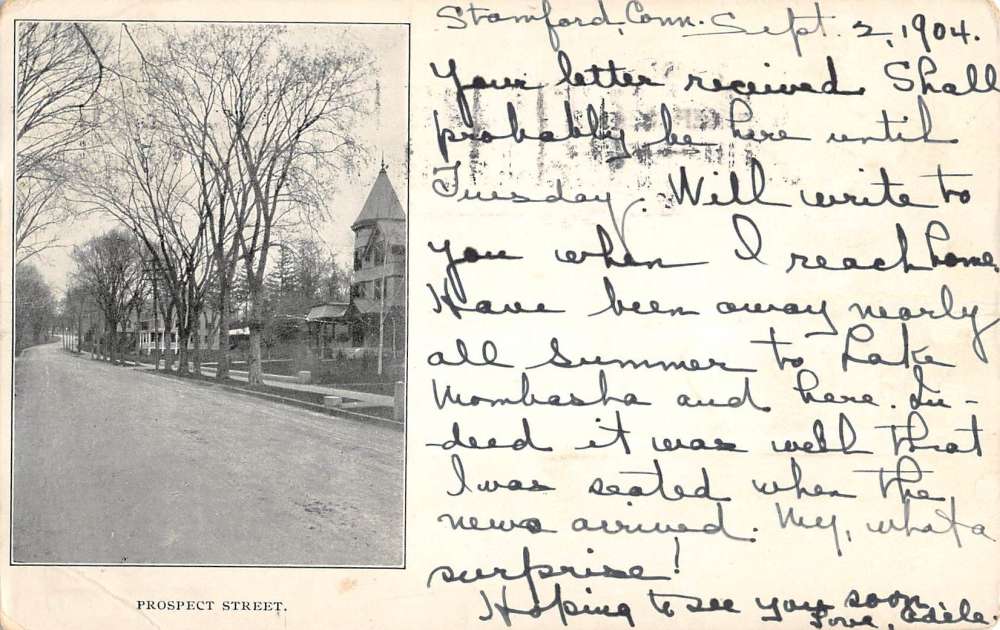 Stamford, Conn. Sept. 2, 1904.
Your letter received. Shall
probably be here until
Tuesday. Will write to
you when I reach home.
Have been away nearly
all Summer to Lake
Mombasha and here. In-
deed it was well that
I was seated when the
news arrived. My, what a
surprise!
Hoping to see you soon.
Love, Adele.
PROSPECT STREET.